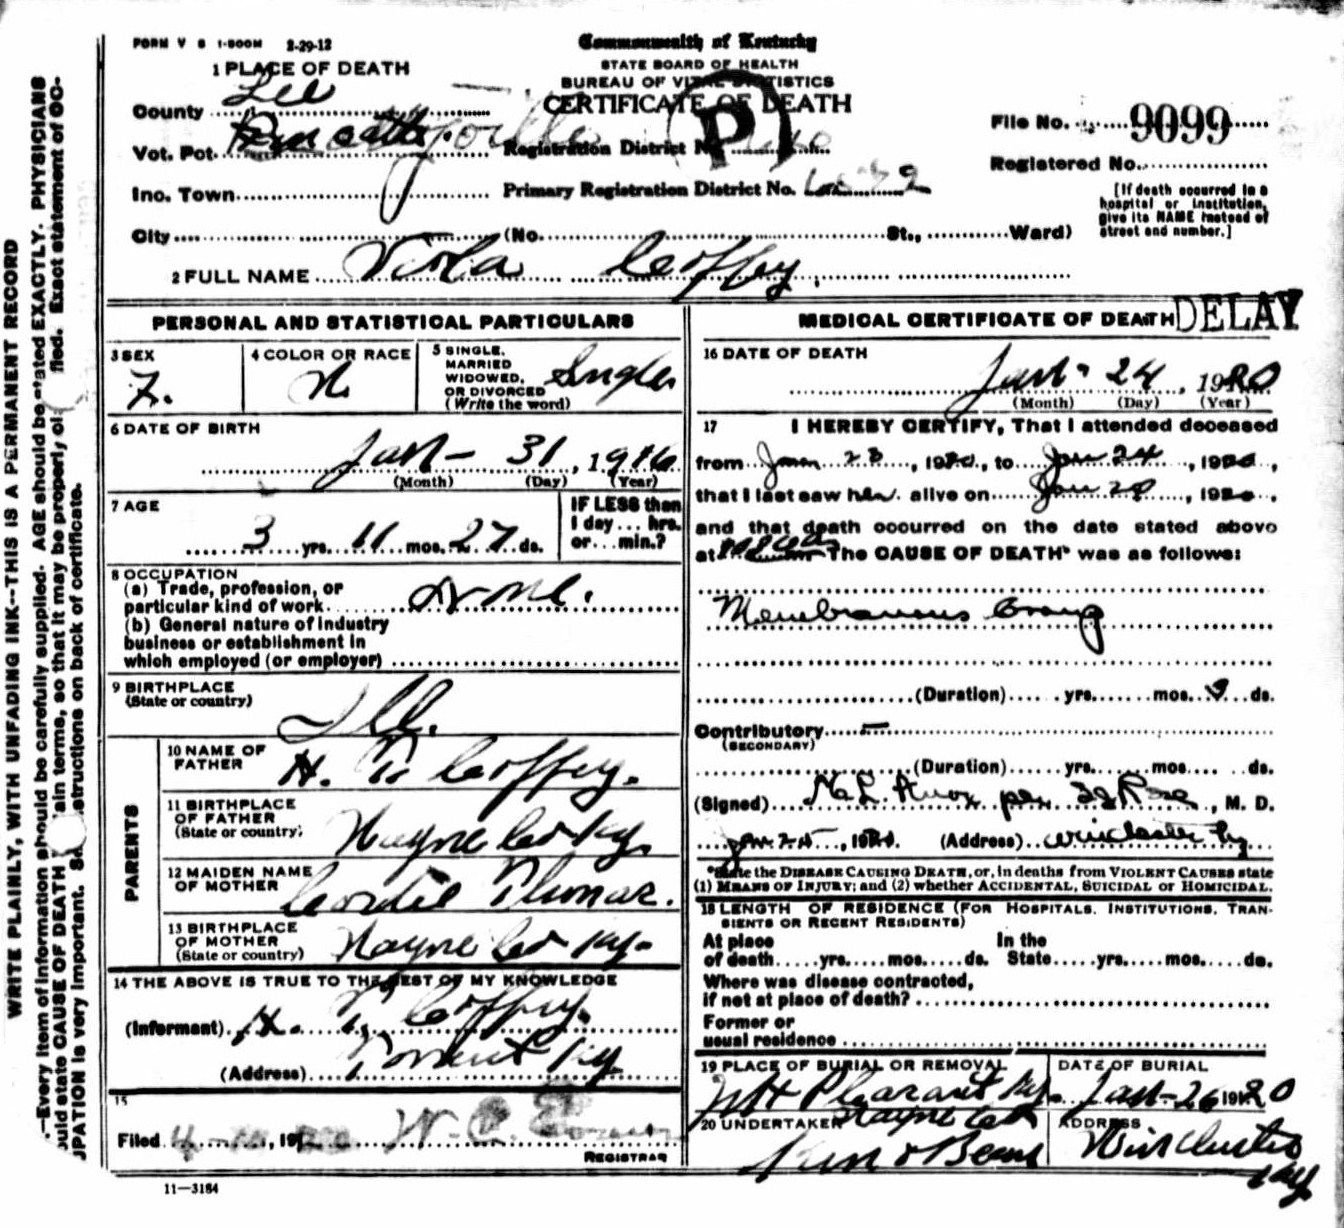 FORM V S 1-500M 2-29-12
Commonwealth of Kentucky
STATE BOARD OF HEALTH
BUREAU OF VITAL STATISTICS
CERTIFICATE OF DEATH
1 PLACE OF DEATH
County Lee
Vot. Pct.
Registration District No.
P
File No. 9099
Registered No.
Inc. Town
Primary Registration District No.
[If death occurred in a hospital or institution, give its NAME instead of street and number.]
City (No. St., Ward)
2 FULL NAME Viola Coffey
PERSONAL AND STATISTICAL PARTICULARS
3 SEX F.
4 COLOR OR RACE W
5 SINGLE, MARRIED WIDOWED, OR DIVORCED (Write the word) Single
6 DATE OF BIRTH
Jan - 31, 1916
(Month) (Day) (Year)
7 AGE
3 yrs. 11 mos. 27 ds.
IF LESS than 1 day... hrs. or... min.?
8 OCCUPATION
(a) Trade, profession, or particular kind of work None.
(b) General nature of industry business or establishment in which employed (or employer)
9 BIRTHPLACE
(State or country) Ill.
PARENTS
10 NAME OF FATHER H. T. Coffey.
11 BIRTHPLACE OF FATHER (State or country) Wayne Co Ky.
12 MAIDEN NAME OF MOTHER Cordie Thomas.
13 BIRTHPLACE OF MOTHER (State or country) Wayne Co Ky.
14 THE ABOVE IS TRUE TO THE BEST OF MY KNOWLEDGE
(Informant) H. T. Coffey.
(Address) Ky
15
Filed 19
REGISTRAR
11—3184
MEDICAL CERTIFICATE OF DEATH
DELAY
16 DATE OF DEATH
Jan. 24, 1920
(Month) (Day) (Year)
17 I HEREBY CERTIFY, That I attended deceased
from Jan 23, 1920, to Jan 24, 1920,
that I last saw her alive on Jan, 1920,
and that death occurred on the date stated above
at The CAUSE OF DEATH* was as follows:
Membranous Croup
(Duration) yrs. mos. ds.
Contributory —
(SECONDARY)
(Duration) yrs. mos. ds.
(Signed) Knox per, M. D.
Jan 25, 1920. (Address) Winchester Ky
*State the DISEASE CAUSING DEATH, or, in deaths from VIOLENT CAUSES state
(1) MEANS OF INJURY; and (2) whether ACCIDENTAL, SUICIDAL or HOMICIDAL.
18 LENGTH OF RESIDENCE (FOR HOSPITALS, INSTITUTIONS, TRANSIENTS OR RECENT RESIDENTS)
At place of death yrs. mos. ds. In the State yrs. mos. ds.
Where was disease contracted,
if not at place of death?
Former or
usual residence
19 PLACE OF BURIAL OR REMOVAL
Mt Pleasant Ky.
Wayne Co
DATE OF BURIAL
Jan - 26 1920
20 UNDERTAKER
ADDRESS
Winchester Ky
WRITE PLAINLY, WITH UNFADING INK--THIS IS A PERMANENT RECORD
—Every item of information should be carefully supplied. AGE should be stated EXACTLY. PHYSICIANS
should state CAUSE OF DEATH plain terms, so that it may be properly
important. instructions on back of certificate.
Exact statement of OC-